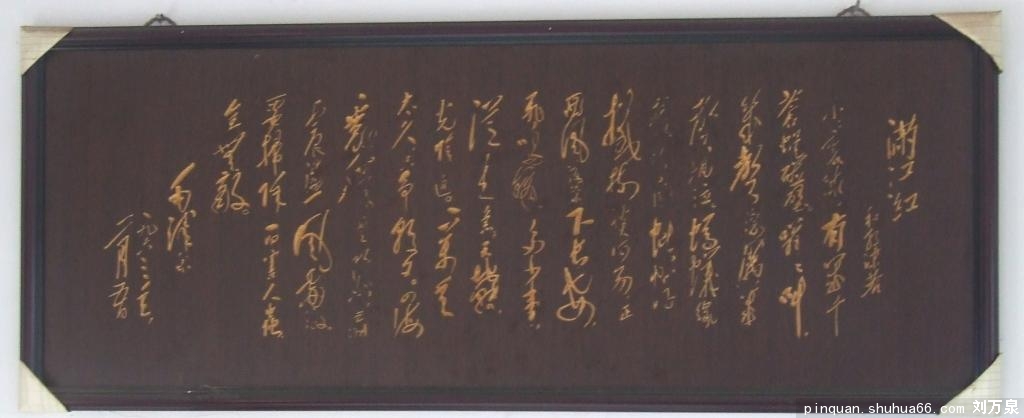 满江红
和郭沫若
小小寰球，有几个
苍蝇碰壁。嗡嗡叫，
几声凄厉，几
声抽泣。蚂蚁缘
槐夸大国，蚍蜉
撼树谈何易。正
西风落叶下长安，
飞鸣镝。多少事，
从来急；天地转，
光阴迫。一万年
太久，只争朝夕。四海
翻腾云水怒，五洲
震荡风雷激。
要扫除一切害人虫，
全无敌。
毛泽东
一九六三年
一月
pinquan.shuhua66.com 刘万泉